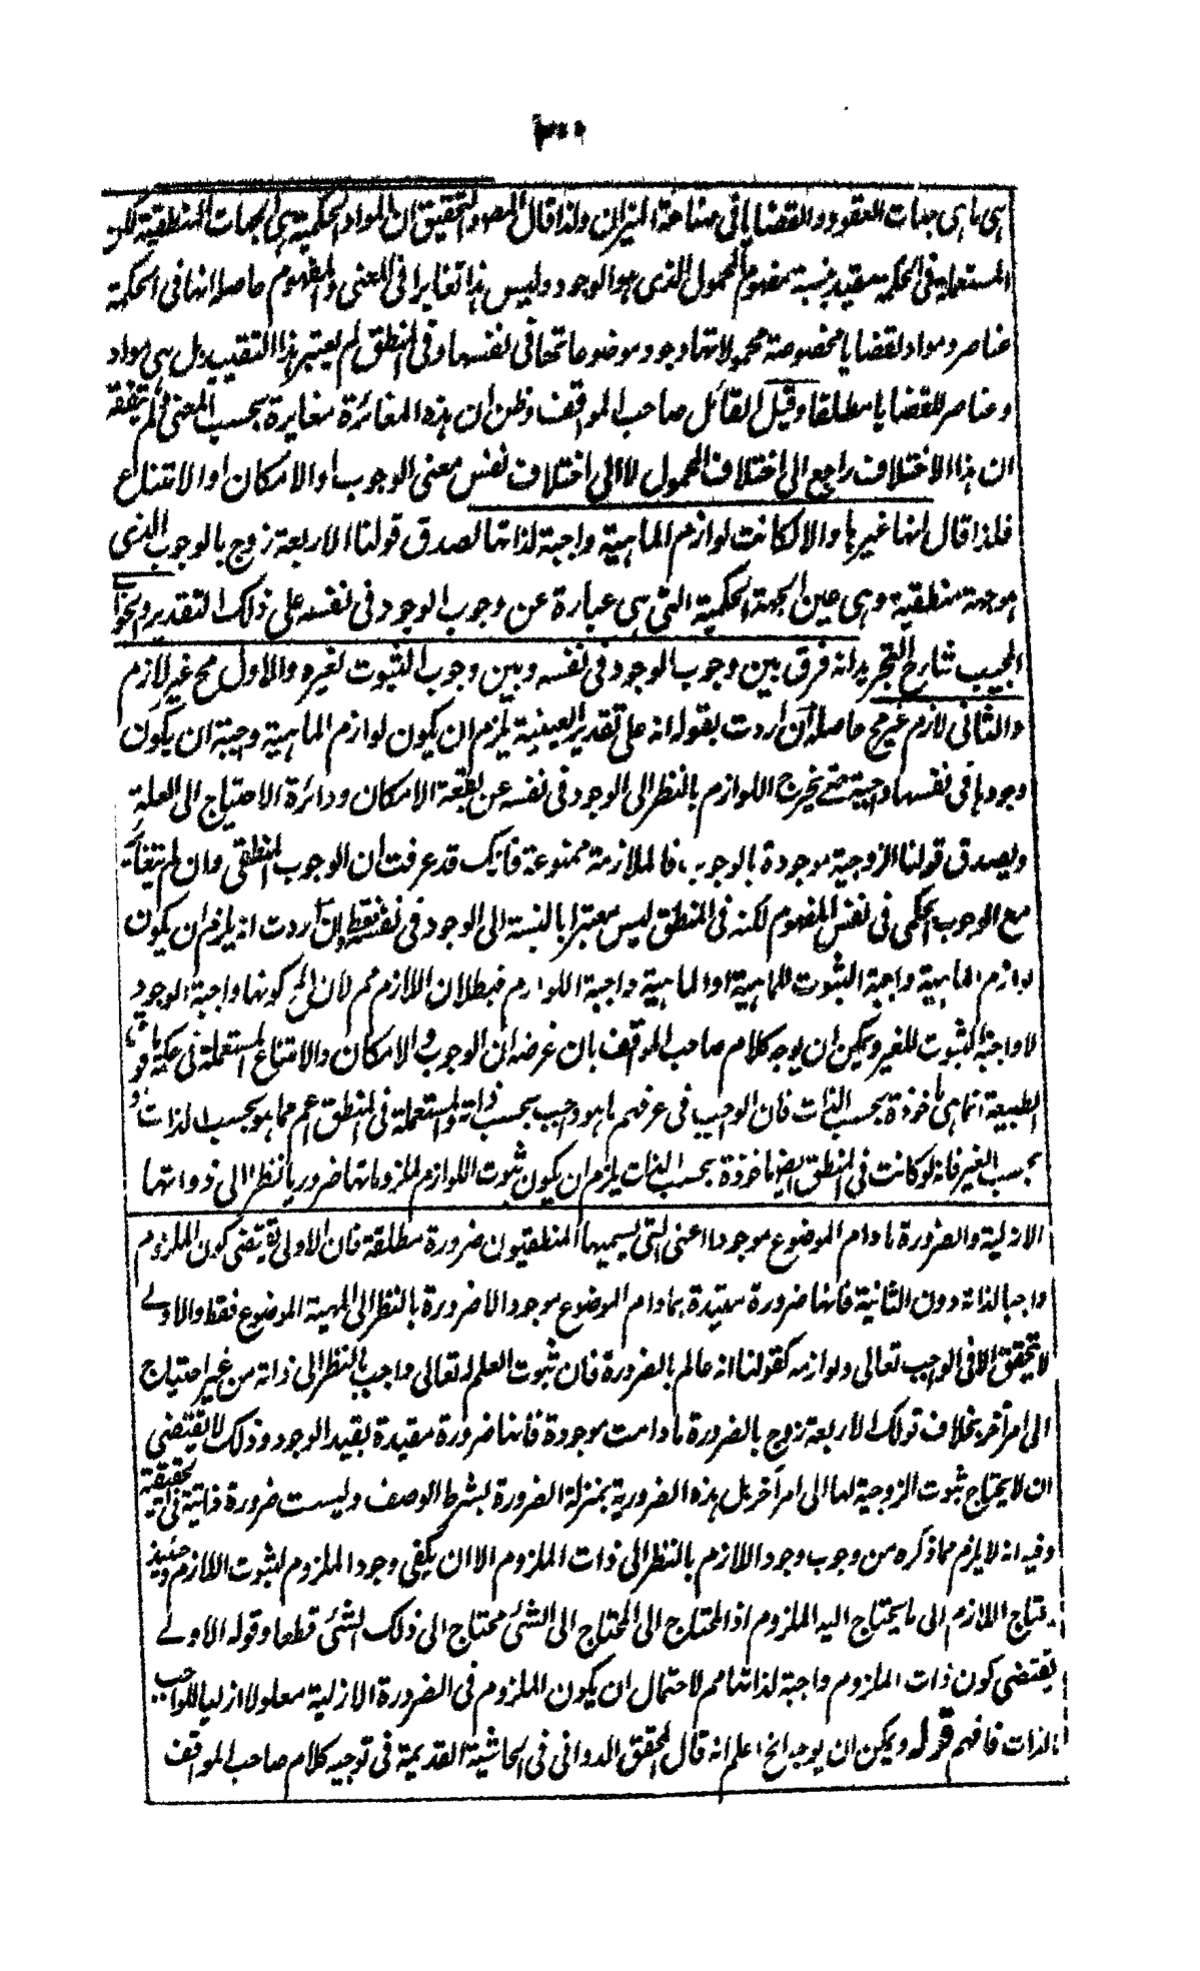 ٣٠٠
هى ما هى جهات العقود والقضايا فى صناعة الميزان ولذا قال المص والتحقيق ان المواد الحكمية هى الجهات المنطقية لكن
المستعملة فى الحكمة مقيد بنسبة مفهوم المحمول الذى هو الوجود وليس هذا تغايرا فى المعنى والمفهوم حاصله انها فى الحكمة
عناصر ومواد لقضايا مخصوصة محمولاتها وجود موضوعاتها فى نفسها وفى المنطق لم يعتبر هذا التقييد بل هى مواد
وعناصر للقضايا مطلقا وقيل القائل صاحب المواقف وظن ان هذه المغائرة مغايرة بحسب المعنى ولم يتفقه
ان هذا الاختلاف راجع الى اختلاف المحمول لا الى اختلاف نفس معنى الوجوب او الامكان او الامتناع
فلذا قال انها غيرها والا لكانت لوازم الماهية واجبة لذاتها لصدق قولنا الاربعة زوج بالوجوب الذى
هو جهة منطقية وهى عين الجهة الحكمية التى هى عبارة عن وجوب الوجود فى نفسه على ذلك التقدير والجواب
المجيب شارح التجريد انه فرق بين وجوب الوجود فى نفسه وبين وجوب الثبوت لغيره والاول مح غير لازم
والثانى لازم غير مح حاصله ان اردت بقوله انه على تقدير العينية يلزم ان يكون لوازم الماهية واجبة ان يكون
وجودها فى نفسها واجبة حتى يخرج اللوازم بالنظر الى الوجود فى نفسه عن بقعة الامكان ودائرة الاحتياج الى العلة
ويصدق قولنا الزوجية موجودة بالوجوب فالملازمة ممنوعة فانك قد عرفت ان الوجوب المنطقى وان لم يتغائر
مع الوجوب الحكمى فى نفس المفهوم لكنه فى المنطق ليس معتبرا بالنسبة الى الوجود فى نفسه فقط وان اردت انه يلزم ان يكون
لوازم الماهية واجبة الثبوت للماهية او الماهية واجبة اللوازم فبطلان اللازم مم لان المح كونها واجبة الوجود
لا واجبة الثبوت للغير ويمكن ان يوجه كلام صاحب المواقف بان غرضه ان الوجوب والامكان والامتناع المستعملة فى حكمة ما فوق
الطبيعة انما هى ماخوذة بحسب الذات فان الواجب فى عرفهم ما هو واجب بحسب ذاته والمستعملة فى المنطق اعم مما هو بحسب الذات او
بحسب الغير فانه لو كانت فى المنطق ايضا ماخوذة بحسب الذات يلزم ان يكون ثبوت اللوازم لملزوماتها ضروريا نظرا الى ذواتها
الازلية والضرورة مادام الموضوع موجودا اعنى التى يسميها المنطقيون ضرورة مطلقة فان الاولى يقتضى كون الملزوم
واجبا لذاته دون الثانية فانها ضرورة مقيدة بمادام الموضوع موجودا لا ضرورة بالنظر الى المهية الموضوع فقط والاولى
لا يتحقق الا فى الواجب تعالى ولوازمه كقولنا انه عالم بالضرورة فان ثبوت العلم له تعالى واجب بالنظر الى ذاته من غير احتياج
الى امر آخر بخلاف قولك الاربعة زوج بالضرورة ما دامت موجودة فانها ضرورة مقيدة بقيد الوجود وذلك لا يقتضى
ان لا يحتاج ثبوت الزوجية لها الى امر آخر بل هذه الضرورية بمنزلة الضرورة بشرط الوصف وليست ضرورة ذاتية فى الحقيقة
وفيه انه لا يلزم مما ذكره من وجوب وجود اللازم بالنظر الى ذات الملزوم الا ان يكفى وجود الملزوم لثبوت اللازم وحينئذ
يحتاج اللازم الى ما يحتاج اليه الملزوم اذ المحتاج الى المحتاج الى الشئ محتاج الى ذلك الشئ قطعا وقوله الاولى
يقتضى كون ذات الملزوم واجبة لذاتها مم لاحتمال ان يكون الملزوم فى الضرورة الازلية معلولا ازليا للواجب
بالذات فافهم قوله ويمكن ان يوجه الخ اعلم انه قال المحقق الدوانى فى الحاشية القديمة فى توجيه كلام صاحب المواقف